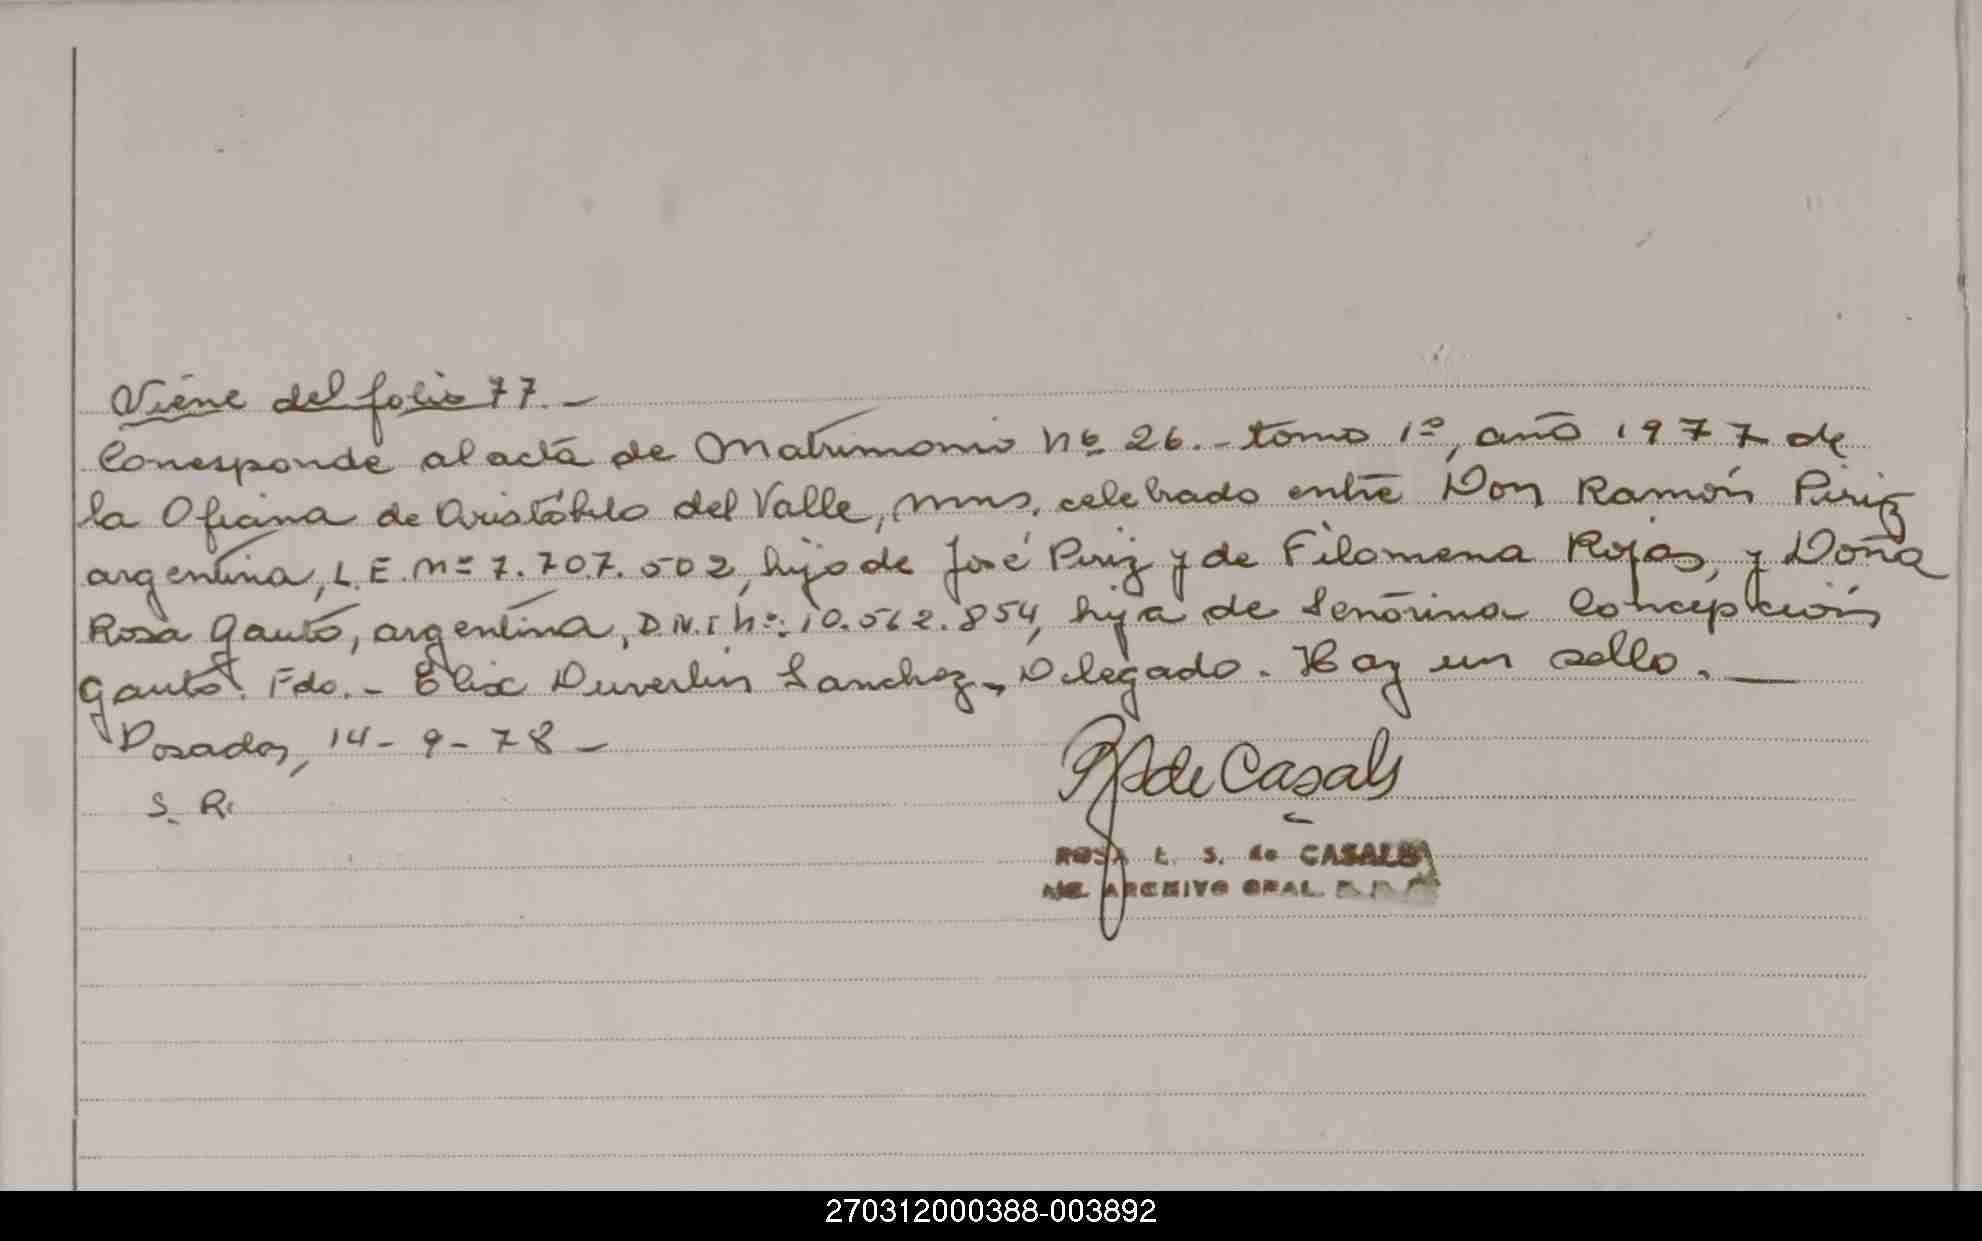 Viene del folio 77.-
Corresponde al acta de Matrimonio Nº 26.- tomo 1º, año 1977 de
la Oficina de Aristóbulo del Valle, Mns. celebrado entre Don Ramón Piriz
argentina, L.E. Nº 7.707.502, hijo de José Piriz y de Filomena Rojas, y Doña
Rosa Gauto, argentina, D.N.I Nº: 10.562.854, hija de Señorina Concepción
Gauto. Fdo.- Elix Duverlin Sanchez, Delegado. Hay un sello.—
Posadas, 14-9-78-
S. R.
de Casals
ROSA L. S. de CASALS
ARCHIVO GRAL.
270312000388-003892